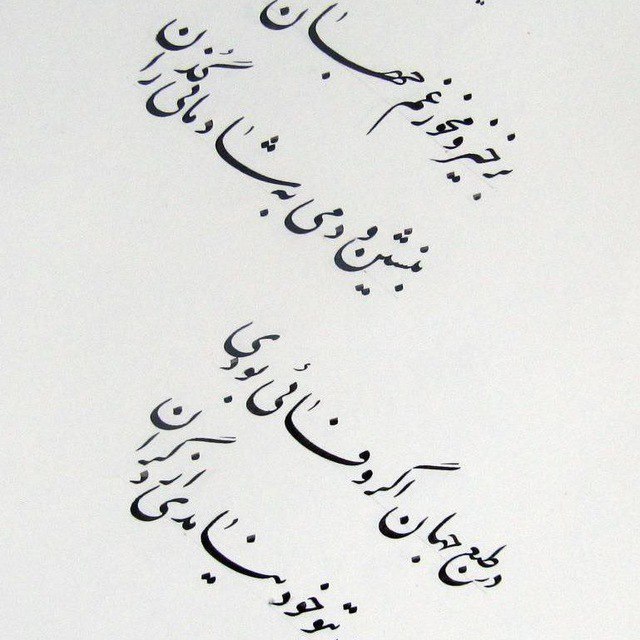 برخیز و مخور غم جهان
بنشین و دمی به شادمانی گذران
در طبع جهان اگر وفائی بودی
بتو خود نیامدی از دگران